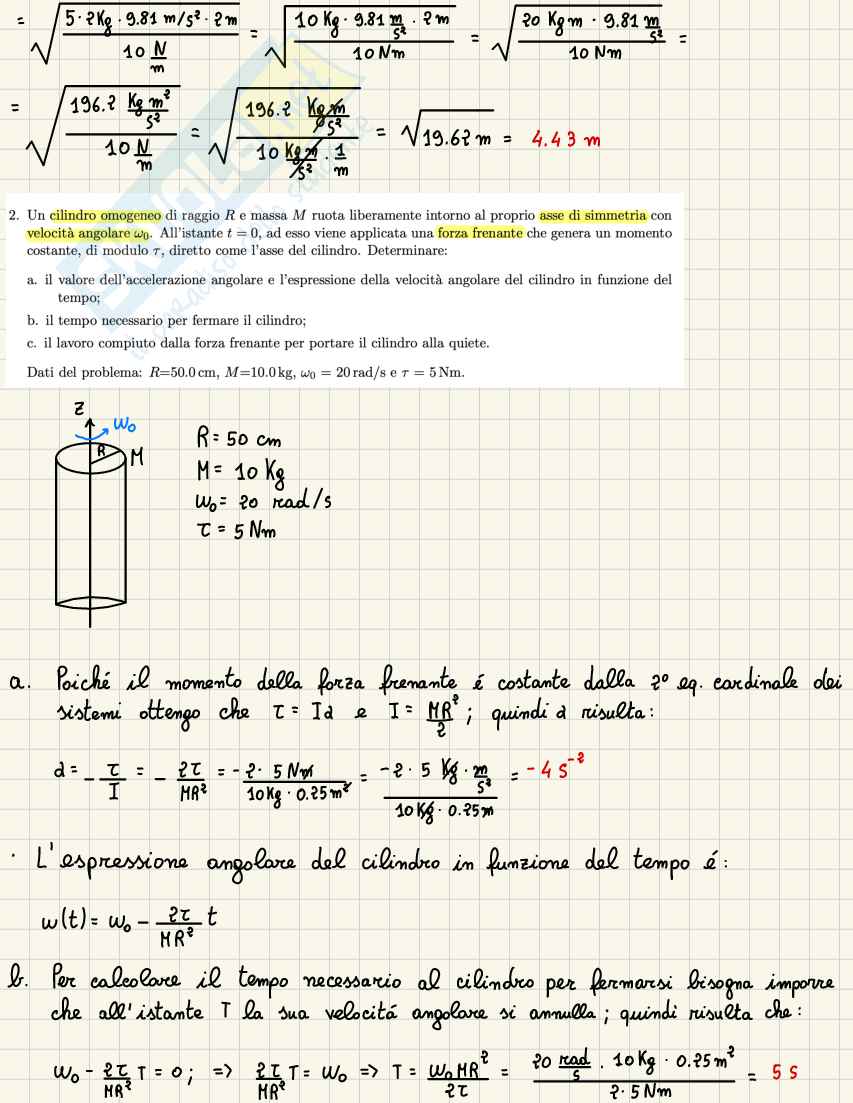 = √(5·2Kg · 9.81 m/s² · 2m / 10 N/m) = √(10 Kg · 9.81 m/s² · 2m / 10 Nm) = √(20 Kgm · 9.81 m/s² / 10 Nm) =
= √(196.2 Kg m²/s² / 10 N/m) = √(196.2 Kg m/s² / 10 Kg m/s² · 1/m) = √19.62 m = 4.43 m
2. Un cilindro omogeneo di raggio R e massa M ruota liberamente intorno al proprio asse di simmetria con
velocità angolare ω₀. All'istante t = 0, ad esso viene applicata una forza frenante che genera un momento
costante, di modulo τ, diretto come l'asse del cilindro. Determinare:
a. il valore dell'accelerazione angolare e l'espressione della velocità angolare del cilindro in funzione del
tempo;
b. il tempo necessario per fermare il cilindro;
c. il lavoro compiuto dalla forza frenante per portare il cilindro alla quiete.
Dati del problema: R=50.0 cm, M=10.0 kg, ω₀ = 20 rad/s e τ = 5 Nm.
z
ω₀
R
M
R = 50 cm
M = 10 Kg
ω₀ = 20 rad/s
τ = 5 Nm
a. Poiché il momento della forza frenante é costante dalla 2° eq. cardinale dei
sistemi ottengo che τ = Iα e I = MR²/2 ; quindi α risulta:
α = - τ/I = - 2τ/MR² = - 2· 5 Nm / 10Kg · 0.25 m² = -2 · 5 Kg · m/s² / 10 Kg · 0.25 m = -4 s⁻²
· L'espressione angolare del cilindro in funzione del tempo é:
ω(t) = ω₀ - 2τ/MR² t
b. Per calcolare il tempo necessario al cilindro per fermarsi bisogna imporre
che all'istante T la sua velocitá angolare si annulla ; quindi risulta che :
ω₀ - 2τ/MR² T = 0 ; => 2τ/MR² T = ω₀ => T = ω₀MR²/2τ = 20 rad/s · 10 Kg · 0.25 m² / 2 · 5 Nm = 5 s